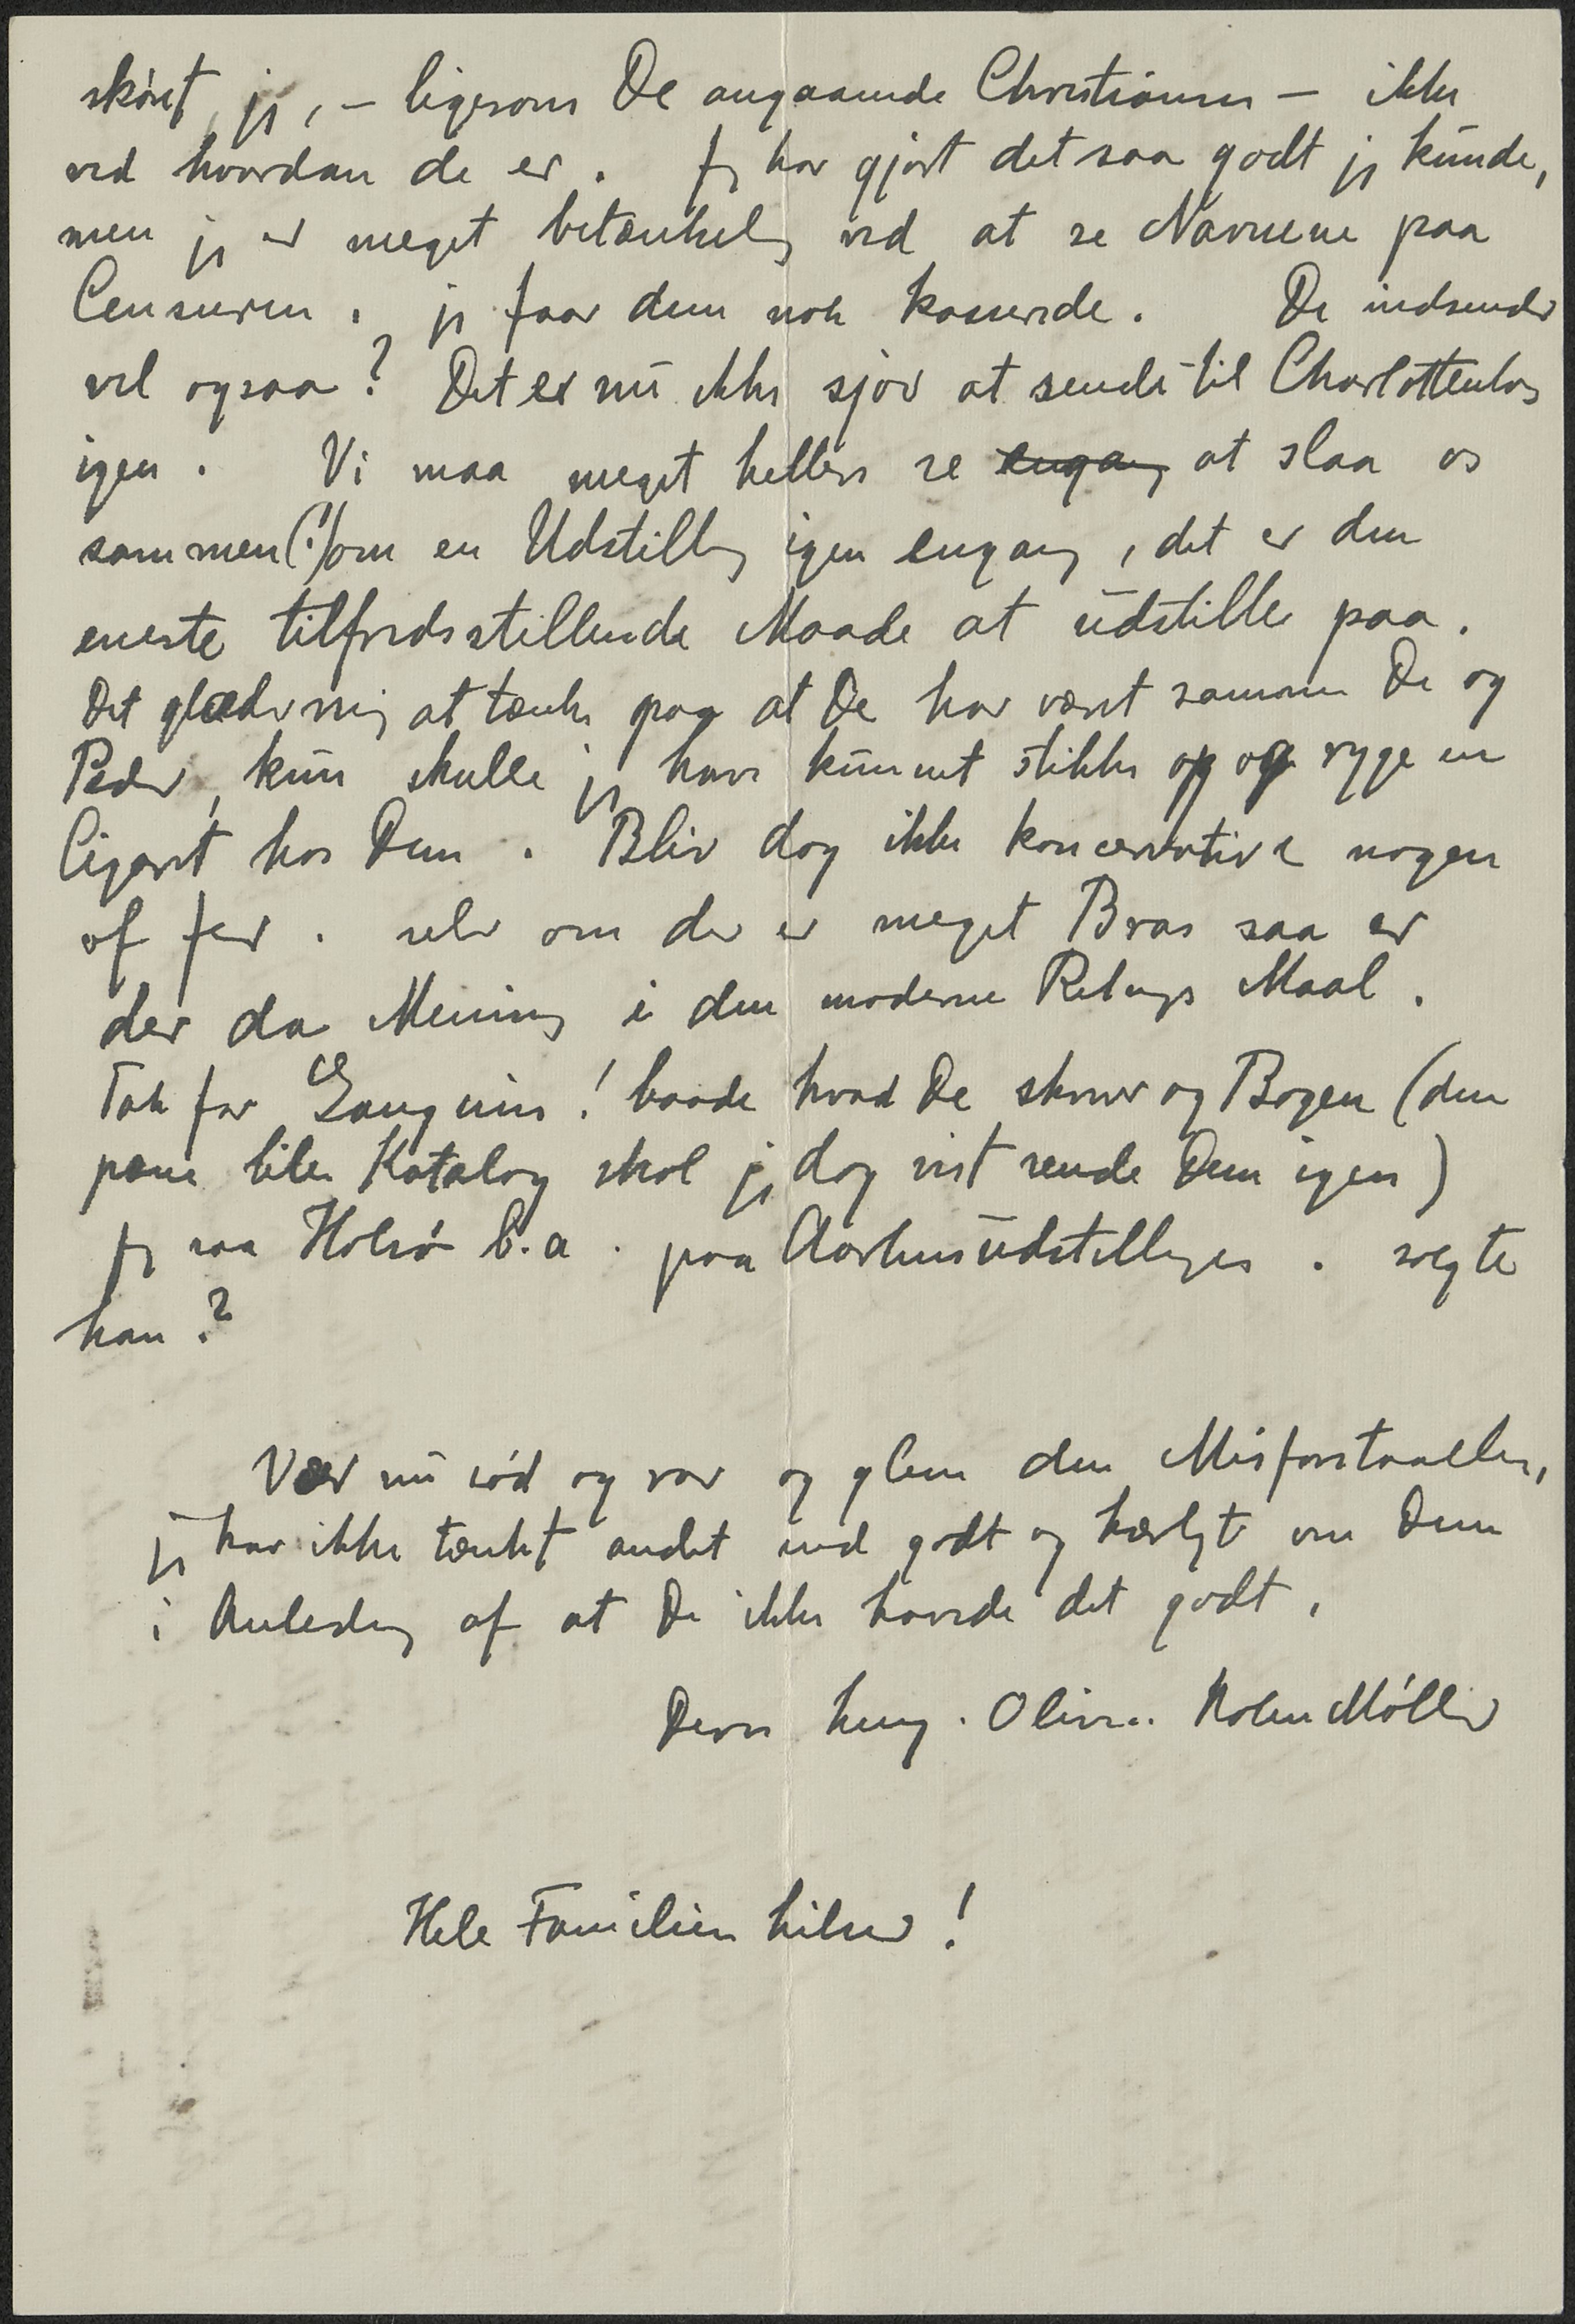 skønt jeg, – ligesom De angaaende Christiansen – ikke
ved hvordan de er. Jeg har gjort det saa godt jeg kunde,
men jeg er meget betænkelig ved at se Navnene paa
Censuren. jeg faar dem nok kasserede. De indsender
vel ogsaa? Det er nu ikke sjov at sende til Charlottenborg
igen. Vi maa meget hellere se engang at slaa os
sammen(!) om en Udstilling igen engang, det er den
eneste tilfredsstillende Maade at udstille paa.
Det glæder mig at tænke paa at De har været sammen De og
Peder, kun skulle jeg have kunnet stikke op og ryge en
Cigaret hos Dem. Bliv dog ikke koncervative nogen
af jer. selv om der er meget Bras saa er
der da Mening i den moderne Retnings Maal.
Tak for Gauguin! baade hvad De skriver og Bogen (den
pæne lille Katalog skal jeg dog vist sende Dem igen)
Jeg saa Holsø b.a. paa Aarhusudstillingen. solgte
han?
Vær nu sød og rar og glem den Misforstaaelse,
jeg har ikke tænkt andet end godt og kærligt om Dem
i Anledning af at De ikke havde det godt,
Deres heng. Olivia Holm Møller
Hele Familien hilser!